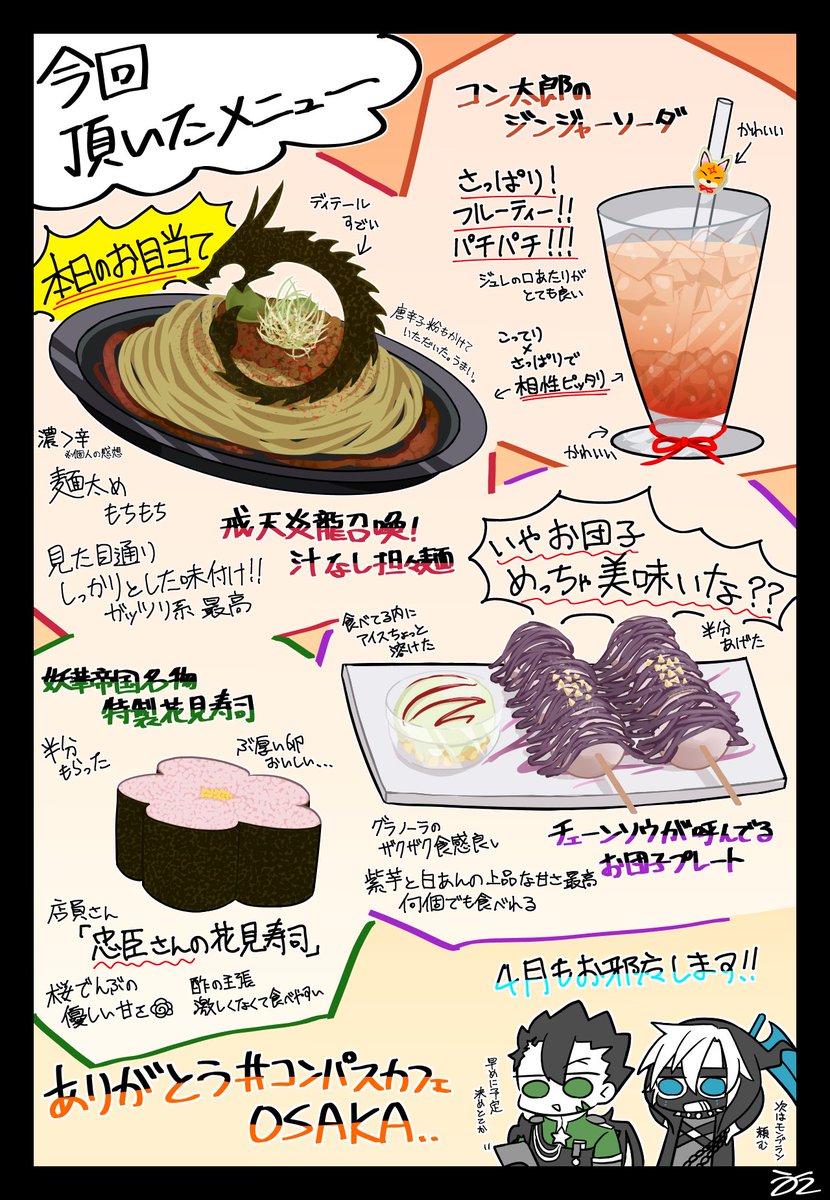 今回
頂いたメニュー
本日のお目当て
ディテール
すごい
唐辛子粉もかけて
いただいた。うまい。
濃>辛
※個人の感想
麺太め
もちもち
見た目通り
しっかりとした味付け!!
ガッツリ系 最高
戒天炎龍召喚!
汁なし担々麺
コン太郎の
ジンジャーソーダ
かわいい
さっぱり!
フルーティー!!
パチパチ!!!
ジュレの口あたりが
とても良い
こってり
×
さっぱりで
相性ピッタリ
かわいい
いやお団子
めっちゃ美味いな??
食べてる内に
アイスちょっと
溶けた
半分
あげた
グラノーラの
ザクザク食感良し
チェーンソウが呼んでる
お団子プレート
紫芋と白あんの上品な甘さ最高
何個でも食べれる
妖華帝国名物
特製花見寿司
半分
もらった
ぶ厚い卵
おいしい...
店員さん
「忠臣さんの花見寿司」
桜でんぶの
優しい甘さ
酢の主張
激しくなくて食べやすい
4月もお邪魔します!!
早めに予定
決めとこか
次はモンブラン
頼む
ありがとう#コンパスカフェ
OSAKA..